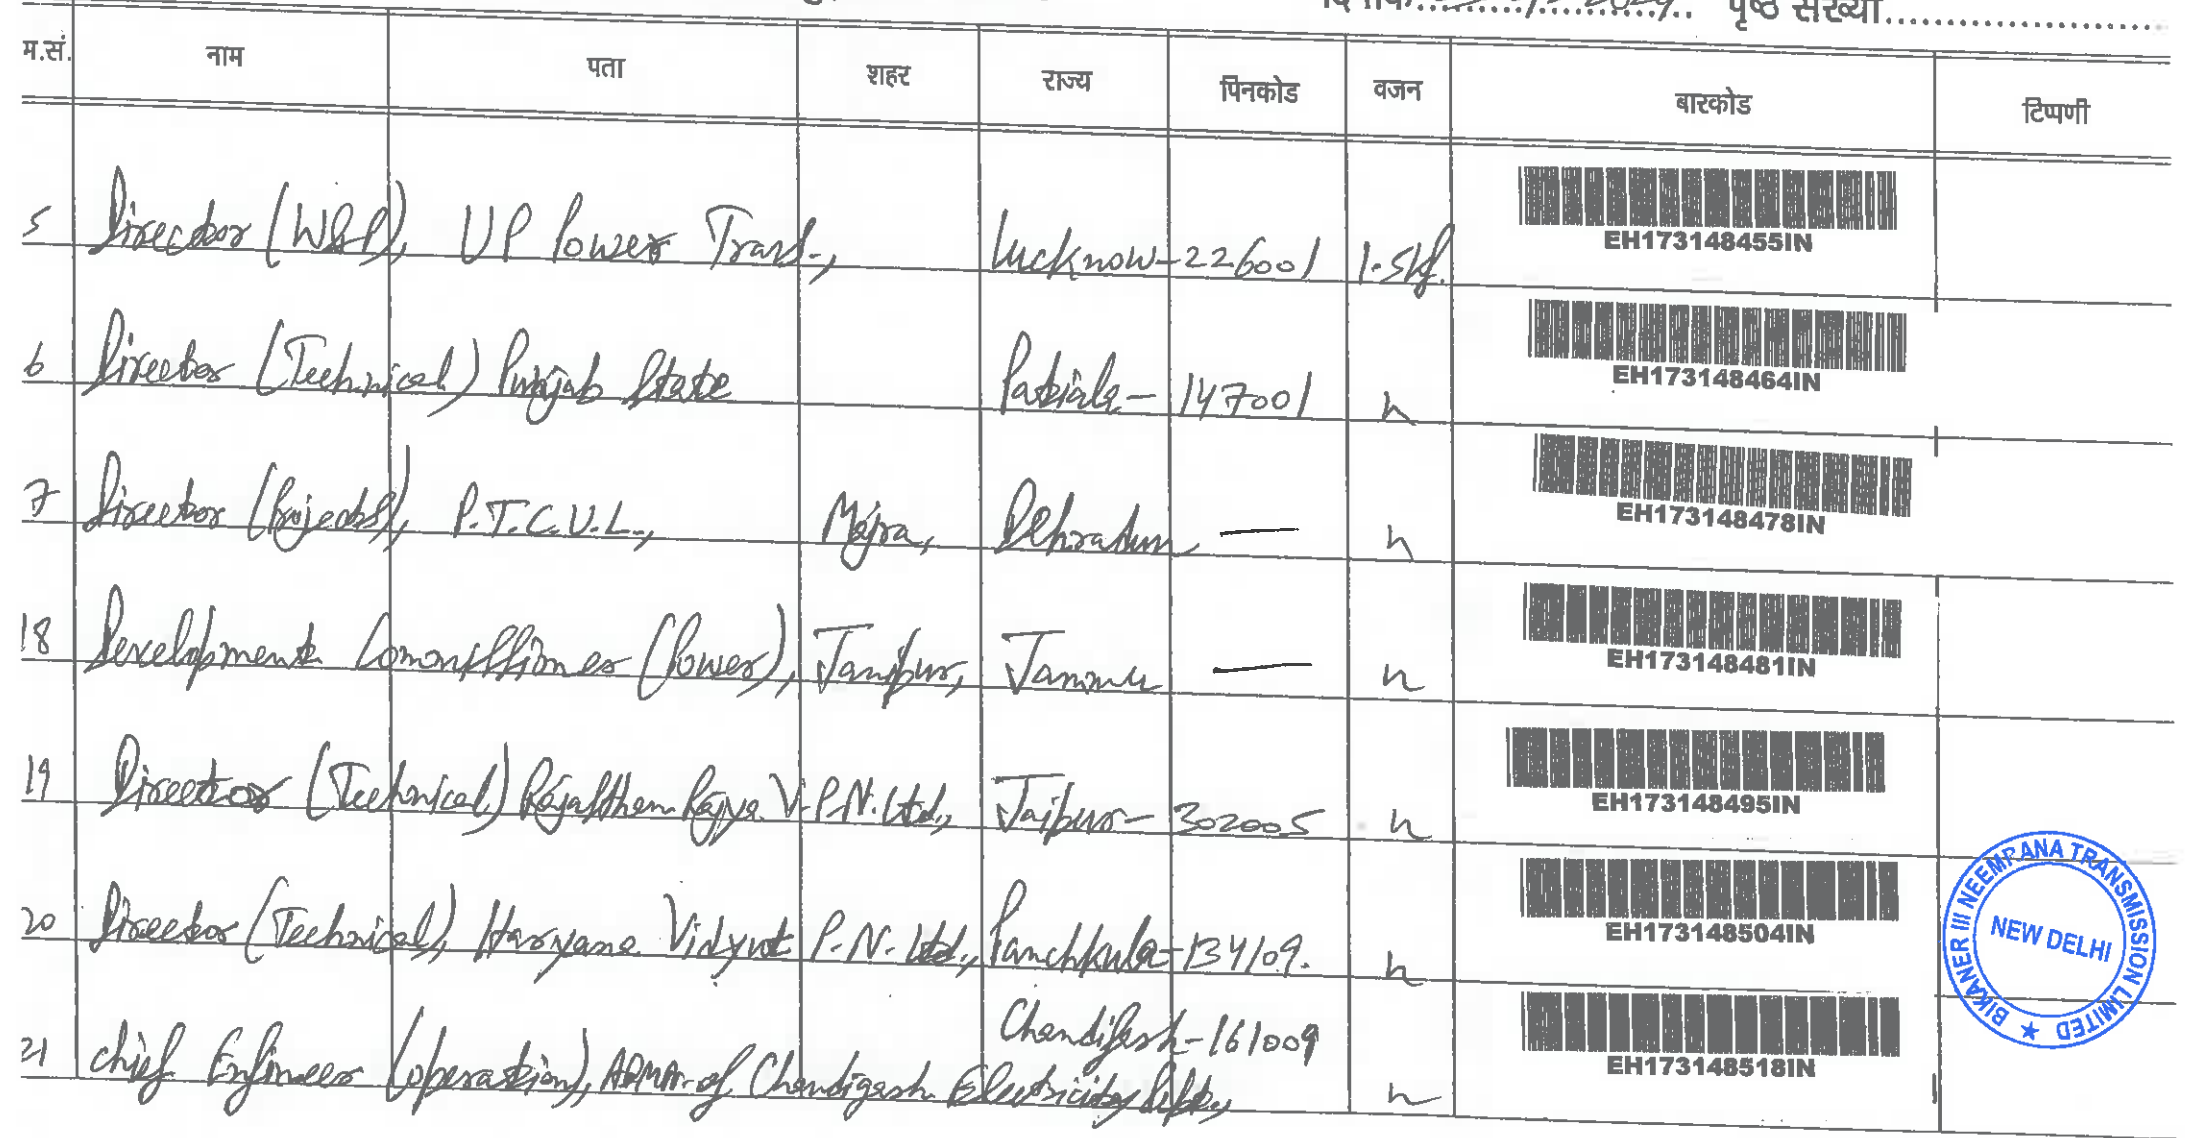 दिनांक.................... पृष्ठ संख्या........................
म.सं. नाम पता शहर राज्य पिनकोड वजन बारकोड टिप्पणी
5 Director (W&P), UP Power Trans., Lucknow-226001 1.5kg.
EH173148455IN
6 Director (Technical) Punjab State Patiala-147001 "
EH173148464IN
7 Director (Projects), P.T.C.U.L., Majra, Dehradun — "
EH173148478IN
18 Development Commissioner (Power), Janipur, Jammu — "
EH173148481IN
19 Director (Technical) Rajasthan Rajya V.P.N. Ltd., Jaipur-302005 "
EH173148495IN
20 Director (Technical), Haryana Vidyut P.N. Ltd., Panchkula-134109. "
EH173148504IN
BIKANER III NEEMRANA TRANSMISSION LIMITED ★
NEW DELHI
Chandigarh-161009
21 Chief Engineer (operation), ADMN. of Chandigarh Electricity Deptt., "
EH173148518IN